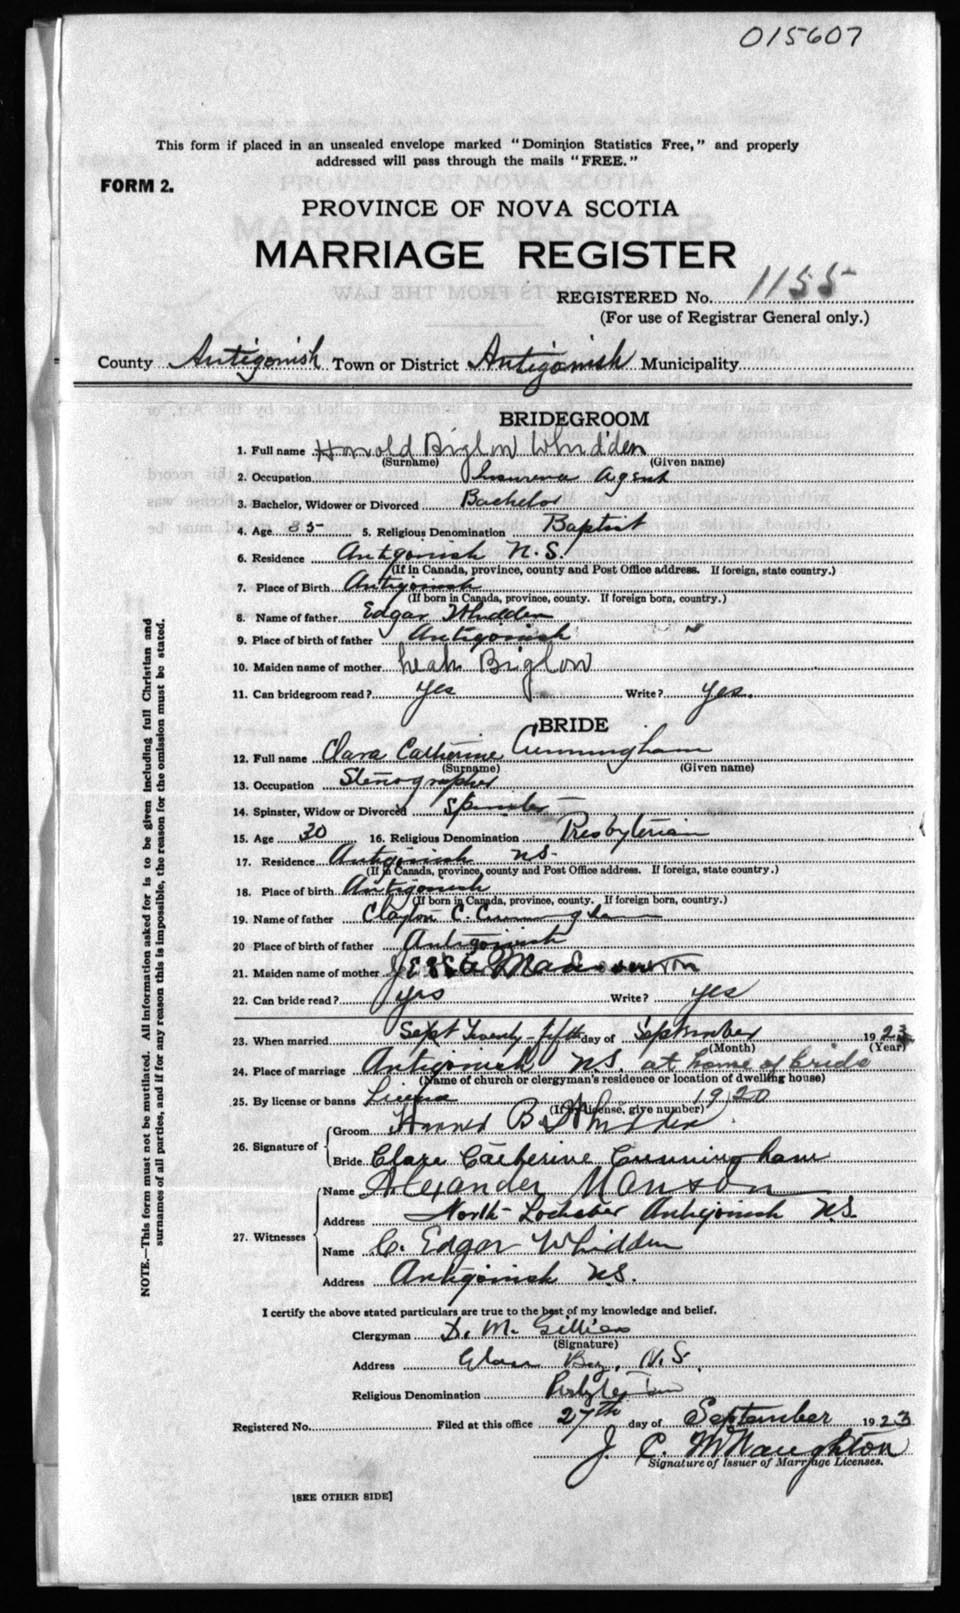 015607
This form if placed in an unsealed envelope marked "Dominion Statistics Free," and properly
addressed will pass through the mails "FREE."
FORM 2.
PROVINCE OF NOVA SCOTIA
MARRIAGE REGISTER
REGISTERED No. 1155
(For use of Registrar General only.)
County Antigonish Town or District Antigonish Municipality
BRIDEGROOM
1. Full name Harold Biglow Whidden
(Surname) (Given name)
2. Occupation Agent
3. Bachelor, Widower or Divorced Bachelor
4. Age 35 5. Religious Denomination Baptist
6. Residence Antigonish N.S.
(If in Canada, province, county and Post Office address. If foreign, state country.)
7. Place of Birth Antigonish
(If born in Canada, province, county. If foreign born, country.)
8. Name of father Edgar Whidden
9. Place of birth of father Antigonish
10. Maiden name of mother Leah Biglow
11. Can bridegroom read? yes Write? yes.
BRIDE
12. Full name Clara Catherine Cunningham
(Surname) (Given name)
13. Occupation Stenographer
14. Spinster, Widow or Divorced Spinster
15. Age 30 16. Religious Denomination Presbyterian
17. Residence Antigonish N.S.
(If in Canada, province, county and Post Office address. If foreign, state country.)
18. Place of birth Antigonish
(If born in Canada, province, county. If foreign born, country.)
19. Name of father Clayton C. Cunningham
20 Place of birth of father Antigonish
21. Maiden name of mother
22. Can bride read? yes Write? yes
23. When married Sept Twenty-fifth day of September 1923
(Month) (Year)
24. Place of marriage Antigonish N.S. at home of bride
(Name of church or clergyman's residence or location of dwelling house)
25. By license or banns License 1920
(If by license, give number)
26. Signature of Groom B. Whidden
Bride Clare Catherine Cunningham
27. Witnesses Name Alexander Manson
Address North Lochaber Antigonish N.S.
Name C. Edgar Whidden
Address Antigonish N.S.
I certify the above stated particulars are true to the best of my knowledge and belief.
Clergyman D. M. Gillies
(Signature)
Address Glace Bay, N.S.
Religious Denomination Presbyterian
Registered No. Filed at this office 27th day of September 1923
J. C. McNaughton
Signature of Issuer of Marriage Licenses.
[SEE OTHER SIDE]
NOTE.—This form must not be mutilated. All information asked for is to be given including full Christian and
surnames of all parties, and if for any reason this is impossible, the reason for the omission must be stated.